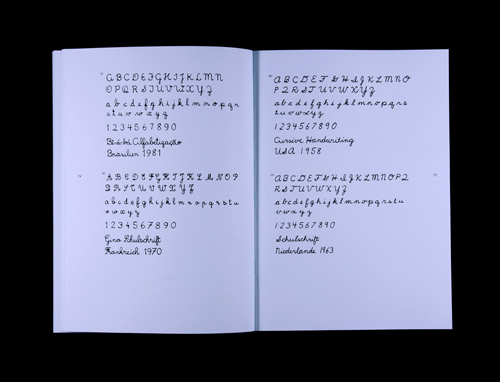 A B C D E F G H I J K L M N
O P Q R S T U V W X Y Z
a b c d e f g h i j k l m n o p q r
s t u v w x y z
1 2 3 4 5 6 7 8 9 0
Be-a-bá Alfabetização
Brasilien 1981
A B C D E F G H I J K L M N O P
Q R S T U V W X Y Z
a b c d e f g h i j k l m n o p q r s t u
v w x y z
1 2 3 4 5 6 7 8 9 0
Gino Schulschrift
Frankreich 1970
A B C D E F G H I J K L M N O
P Q R S T U V W X Y Z
a b c d e f g h i j k l m n o p q r s
t u v w x y z
1 2 3 4 5 6 7 8 9 0
Cursive Handwriting
USA 1958
A B C D E F G H I J K L M N O P Q
R S T U V W X Y Z
a b c d e f g h i j k l m n o p q r s t u
v w x y z
1 2 3 4 5 6 7 8 9 0
Schulschrift
Niederlande 1963